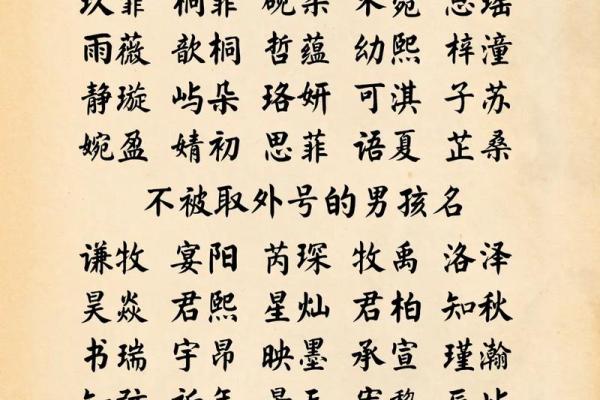 雨薇 歆桐 哲蕴 幼熙 梓潼
静璇 屿朵 珞妍 可淇 子苏
婉盈 婧初 思菲 语夏 芷桑
不被取外号的男孩名
谦牧 宴阳 芮琛 牧禹 洛泽
昊焱 君熙 星灿 君柏 知秋
书瑞 宇昂 映墨 承宣 瑾瀚